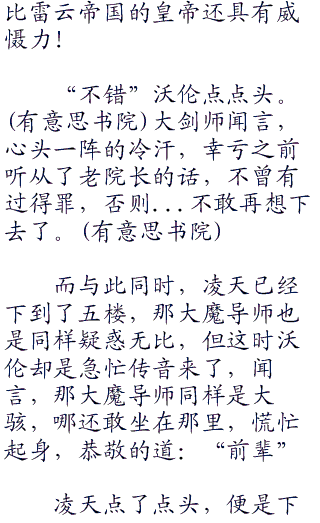 比雷云帝国的皇帝还具有威
慑力！
“不错”沃伦点点头。
(有意思书院)大剑师闻言，
心头一阵的冷汗，幸亏之前
听从了老院长的话，不曾有
过得罪，否则...不敢再想下
去了。(有意思书院)
而与此同时，凌天已经
下到了五楼，那大魔导师也
是同样疑惑无比，但这时沃
伦却是急忙传音来了，闻
言，那大魔导师同样是大
骇，哪还敢坐在那里，慌忙
起身，恭敬的道：“前辈”
凌天点了点头，便是下